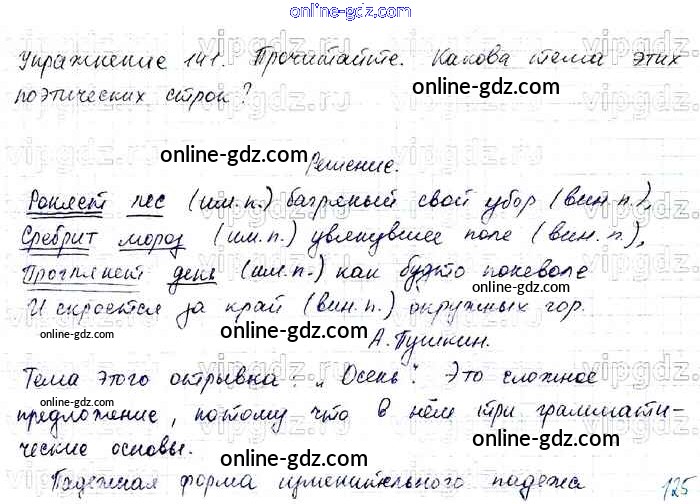 online-gdz.com
Упражнение 141. Прочитайте. Какова тема этих
online-gdz.com
поэтических строк?
online-gdz.com
Решение.
online-gdz.com
Роняет лес (им.п.) багряный свой убор (вин.п.),
Сребрит мороз (им.п.) увянувшее поле (вин.п.),
Проглянет день (им.п.) как будто поневоле
И скроется за край (вин.п.) окружных гор.
online-gdz.com
А. Пушкин.
Тема этого отрывка: "Осень". Это сложное
предложение, потому что в нём три граммати-
ческие основы.
online-gdz.com
Падежная форма именительного падежа
125